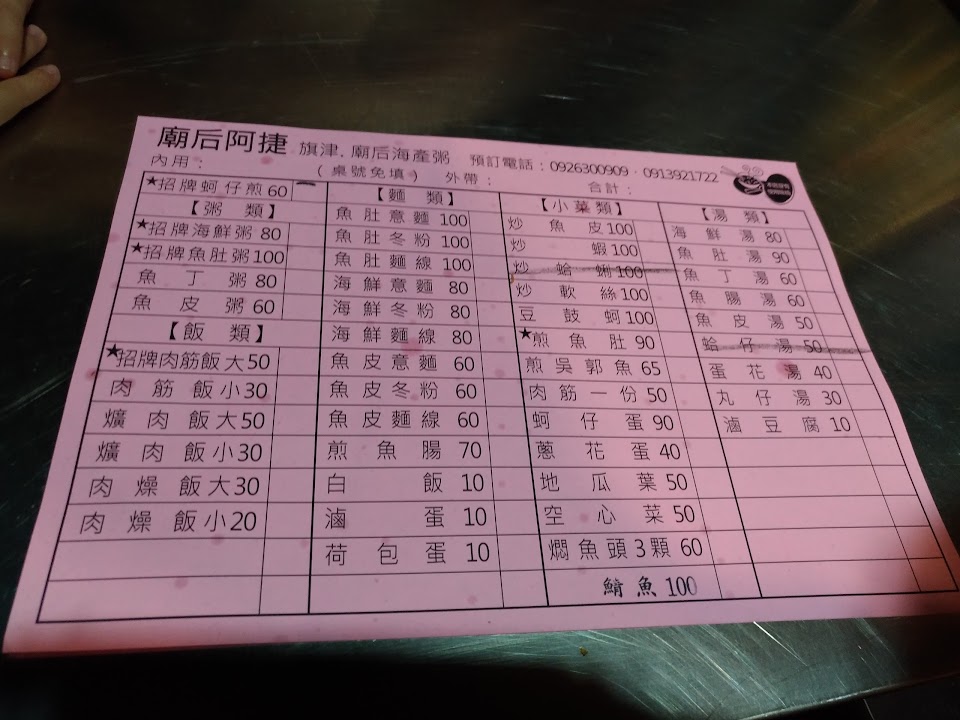 廟后阿捷 旗津.廟后海產粥 預訂電話：0926300909．0913921722
內用： （桌號免填） 外帶： 合計：
★招牌蚵仔煎60
【粥類】
★招牌海鮮粥80
★招牌魚肚粥100
魚丁粥80
魚皮粥60
【飯類】
★招牌肉筋飯大50
肉筋飯小30
爌肉飯大50
爌肉飯小30
肉燥飯大30
肉燥飯小20
【麵類】
魚肚意麵100
魚肚冬粉100
魚肚麵線100
海鮮意麵80
海鮮冬粉80
海鮮麵線80
魚皮意麵60
魚皮冬粉60
魚皮麵線60
煎魚腸70
白飯10
滷蛋10
荷包蛋10
【小菜類】
炒魚皮100
炒蝦100
炒蛤蜊100
炒軟絲100
豆鼓蚵100
★煎魚肚90
煎吳郭魚65
肉筋一份50
蚵仔蛋90
蔥花蛋40
地瓜葉50
空心菜50
燜魚頭3顆60
鯖魚100
【湯類】
海鮮湯80
魚肚湯90
魚丁湯60
魚腸湯60
魚皮湯50
蛤仔湯50
蛋花湯40
丸仔湯30
滷豆腐10